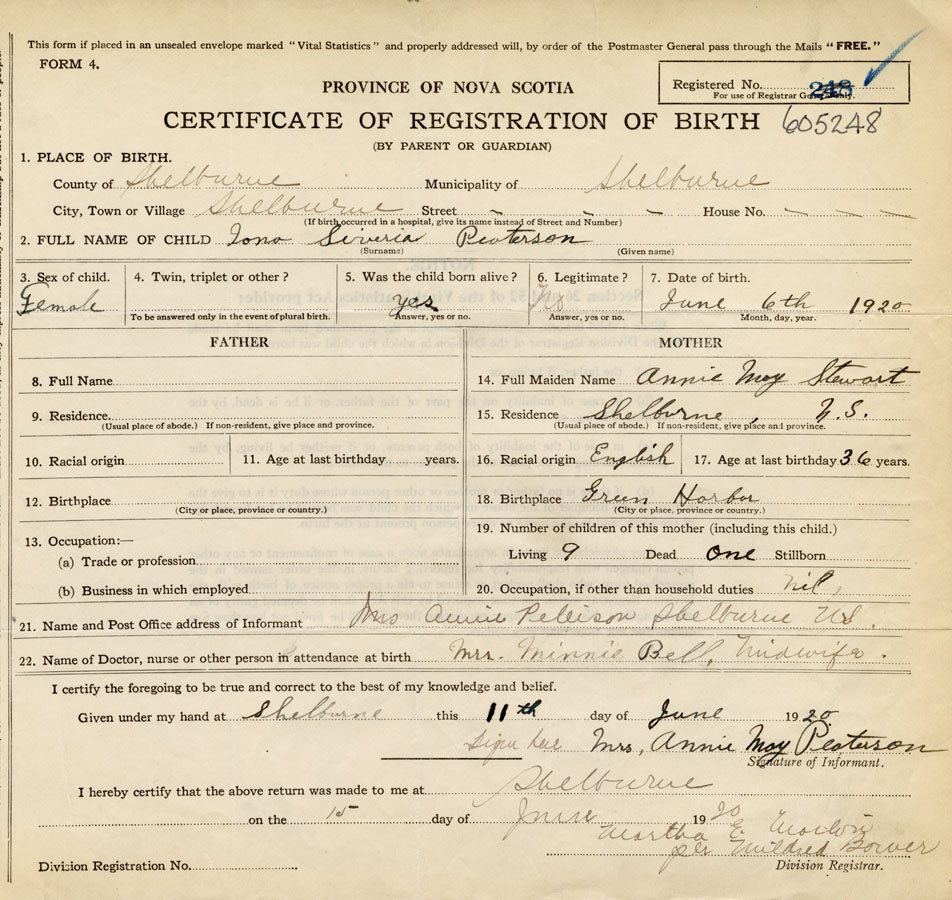 This form if placed in an unsealed envelope marked "Vital Statistics" and properly addressed will, by order of the Postmaster General pass through the Mails "FREE."
FORM 4.
PROVINCE OF NOVA SCOTIA
Registered No. 248
For use of Registrar General only.
CERTIFICATE OF REGISTRATION OF BIRTH 605248
(BY PARENT OR GUARDIAN)
1. PLACE OF BIRTH.
County of Shelburne Municipality of Shelburne
City, Town or Village Shelburne Street - - - House No. - - -
(If birth occurred in a hospital, give its name instead of Street and Number)
2. FULL NAME OF CHILD Iona Peaterson
(Surname) (Given name)
3. Sex of child. 4. Twin, triplet or other? 5. Was the child born alive? 6. Legitimate? 7. Date of birth.
Female yes June 6th 1920
To be answered only in the event of plural birth. Answer, yes or no. Answer, yes or no. Month, day, year.
FATHER MOTHER
8. Full Name 14. Full Maiden Name Annie May Stewart
9. Residence. 15. Residence Shelburne, N.S.
(Usual place of abode.) If non-resident, give place and province. (Usual place of abode.) If non-resident, give place and province.
10. Racial origin 11. Age at last birthday years. 16. Racial origin English 17. Age at last birthday 36 years.
12. Birthplace 18. Birthplace Green Harbor
(City or place, province or country.) (City or place, province or country.)
13. Occupation:— 19. Number of children of this mother (including this child.)
(a) Trade or profession Living 9 Dead one Stillborn
(b) Business in which employed 20. Occupation, if other than household duties nil,
21. Name and Post Office address of Informant Mrs Annie Shelburne N.S.
22. Name of Doctor, nurse or other person in attendance at birth Mrs. Minnie Bell, Midwife.
I certify the foregoing to be true and correct to the best of my knowledge and belief.
Given under my hand at Shelburne this 11th day of June 1920
Sign here Mrs, Annie May Peaterson
Signature of Informant.
I hereby certify that the above return was made to me at Shelburne
on the 15 day of June 1920
Martha E.
per Mildred Bower
Division Registration No. Division Registrar.